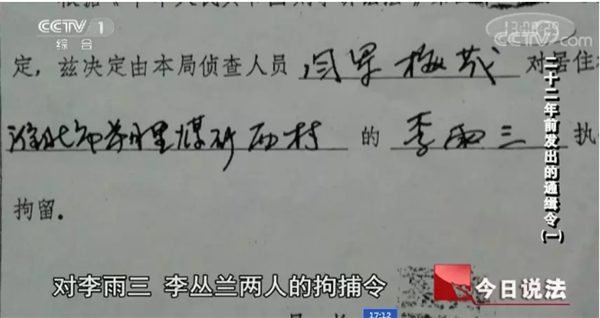 CCTV 1
综合
CCTV.com
定，兹决定由本局侦查人员 对居住
煤矿西村 的 李雨三 执
拘留。
二十二年前发出的通缉令(一)
对李雨三 李丛兰两人的拘捕令
今日说法
17:12